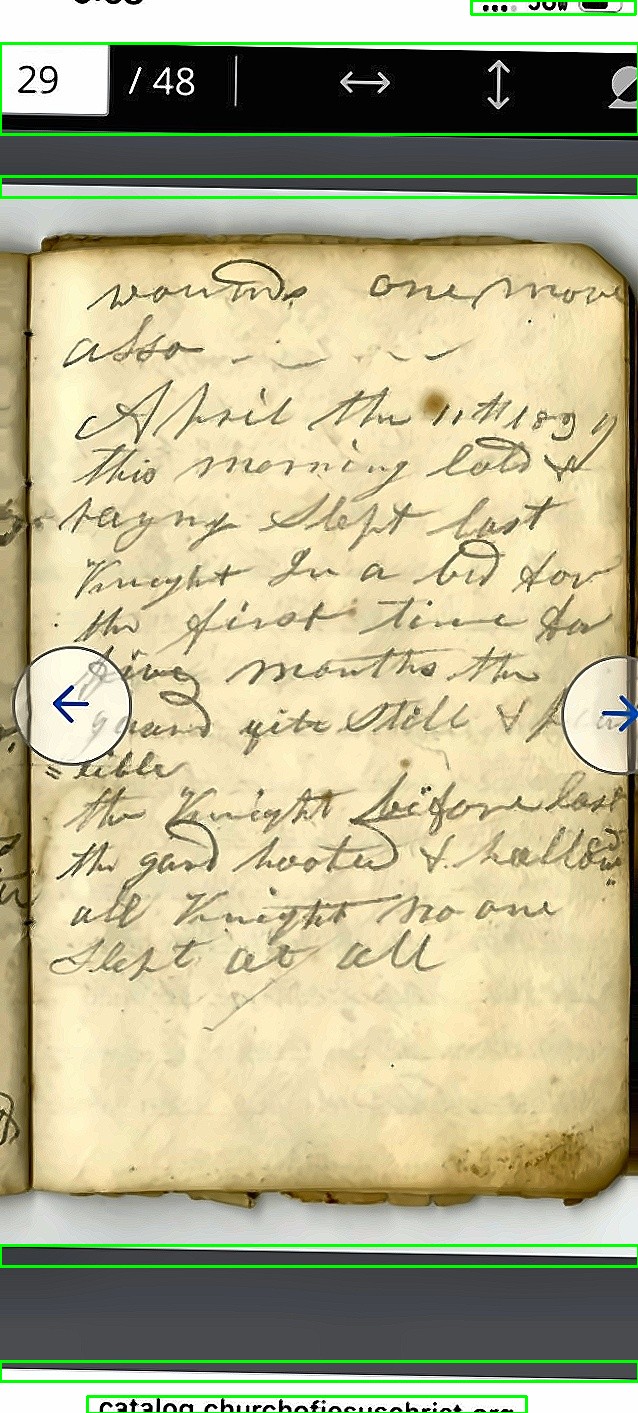 29 / 48
wounds one more
also
April the 11th 1839
this morning cold &
rayny Slept last
Knight In a bed for
the first time for
five months the
guard qite Still &
= cible
the Knight before last
the gard hooted & hallow
all Knight no one
Slept at all
catalog.churchofjesuschrist.org